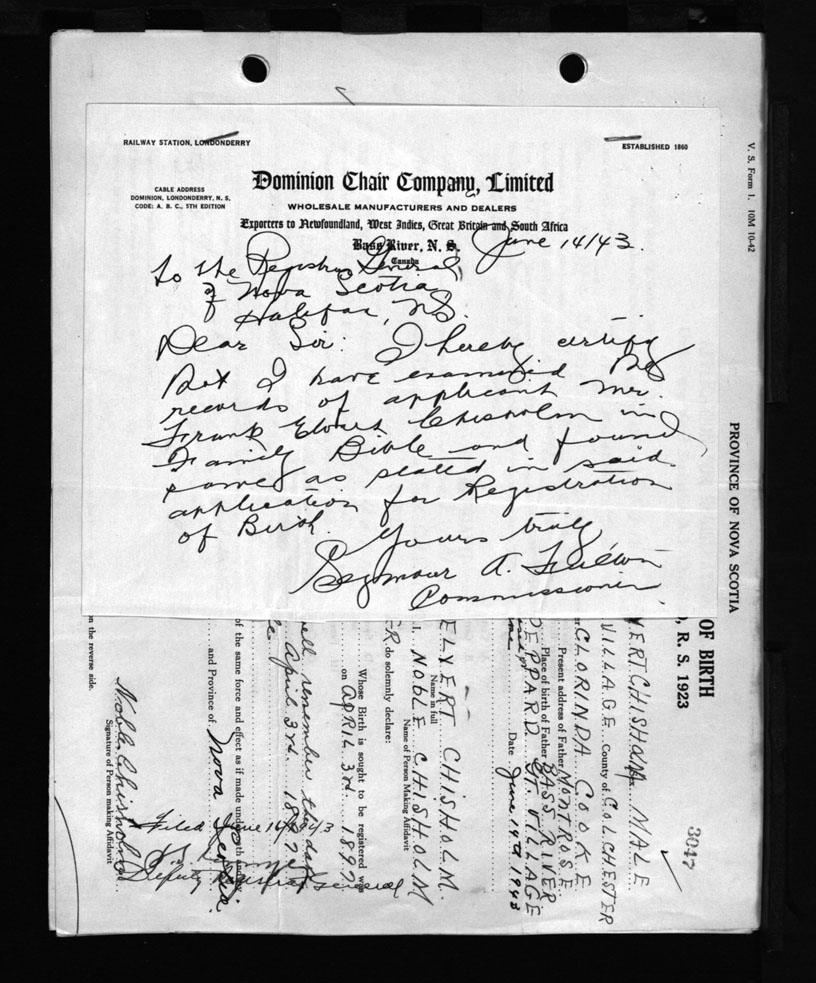 RAILWAY STATION, LONDONDERRY
ESTABLISHED 1860
CABLE ADDRESS
DOMINION, LONDONDERRY, N. S.
CODE: A. B. C., 5TH EDITION
Dominion Chair Company, Limited
WHOLESALE MANUFACTURERS AND DEALERS
Exporters to Newfoundland, West Indies, Great Britain and South Africa
Bass River, N. S.
Canada
June 14/43.
To the Registrar General
of Nova Scotia
Halifax, N.S.
Dear Sir: I hereby certify
that I have examined the
records of applicant Mr.
Frank Elvert Chisholm in
Family Bible and found
same as stated in said
application for Registration
of Birth.
Yours truly
Seymour A. Fulton
Commissioner.
V. S. Form 1. 10M 10-42
PROVINCE OF NOVA SCOTIA
OF BIRTH
, R. S. 1923
3047
VERT CHISHOLM MALE
VILLAGE County of COLCHESTER
CLORINDA COOKE
Present address of Father MONTROSE
Place of birth of Father BASS RIVER
DEPPARD GT. VILLAGE
Date June 14th 1943
ELVERT CHISHOLM.
Name in full
I, NOBLE CHISHOLM
Name of Person Making Affidavit
ER do solemnly declare:
Whose Birth is sought to be registered was
on APRIL 3rd. 1897
well remember the day
April 3rd. 1897
of the same force and effect as if made under oath
and Province of Nova Scotia.
Filed June 16/1943
Deputy Registrar General
Noble Chisholm
Signature of Person making Affidavit
on the reverse side.